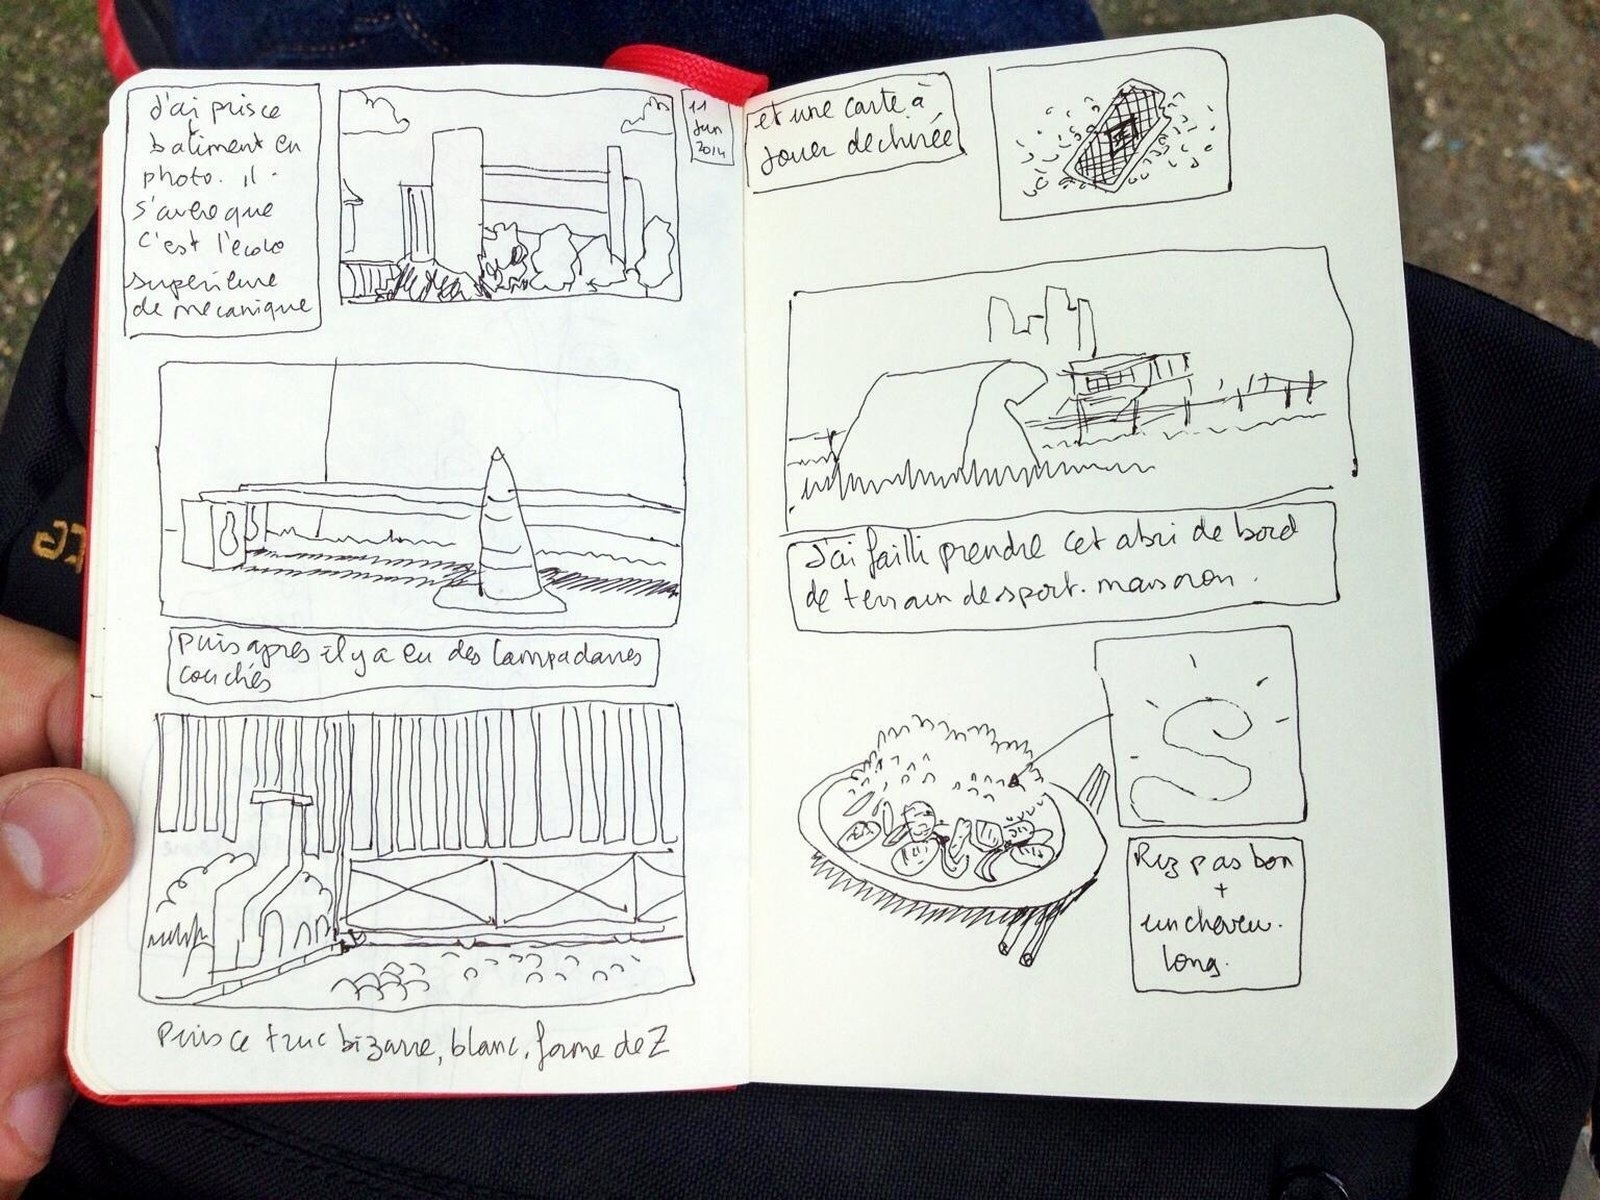 j'ai pris ce
batiment en
photo. il
s'avere que
c'est l'ecole
superieure
de mecanique
11
Juin
2014
puis apres il y a eu des lampadaires
couchés
Puis ce truc bizarre, blanc, forme de Z
et une carte à
jouer dechirée
J'ai failli prendre cet abri de bord
de terrain de sport. mais non.
Riz pas bon
+
un cheveu.
long.